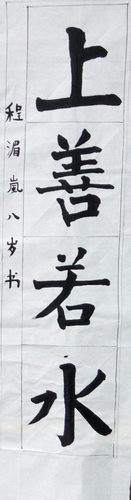 上善若水
程湄嵐八岁书